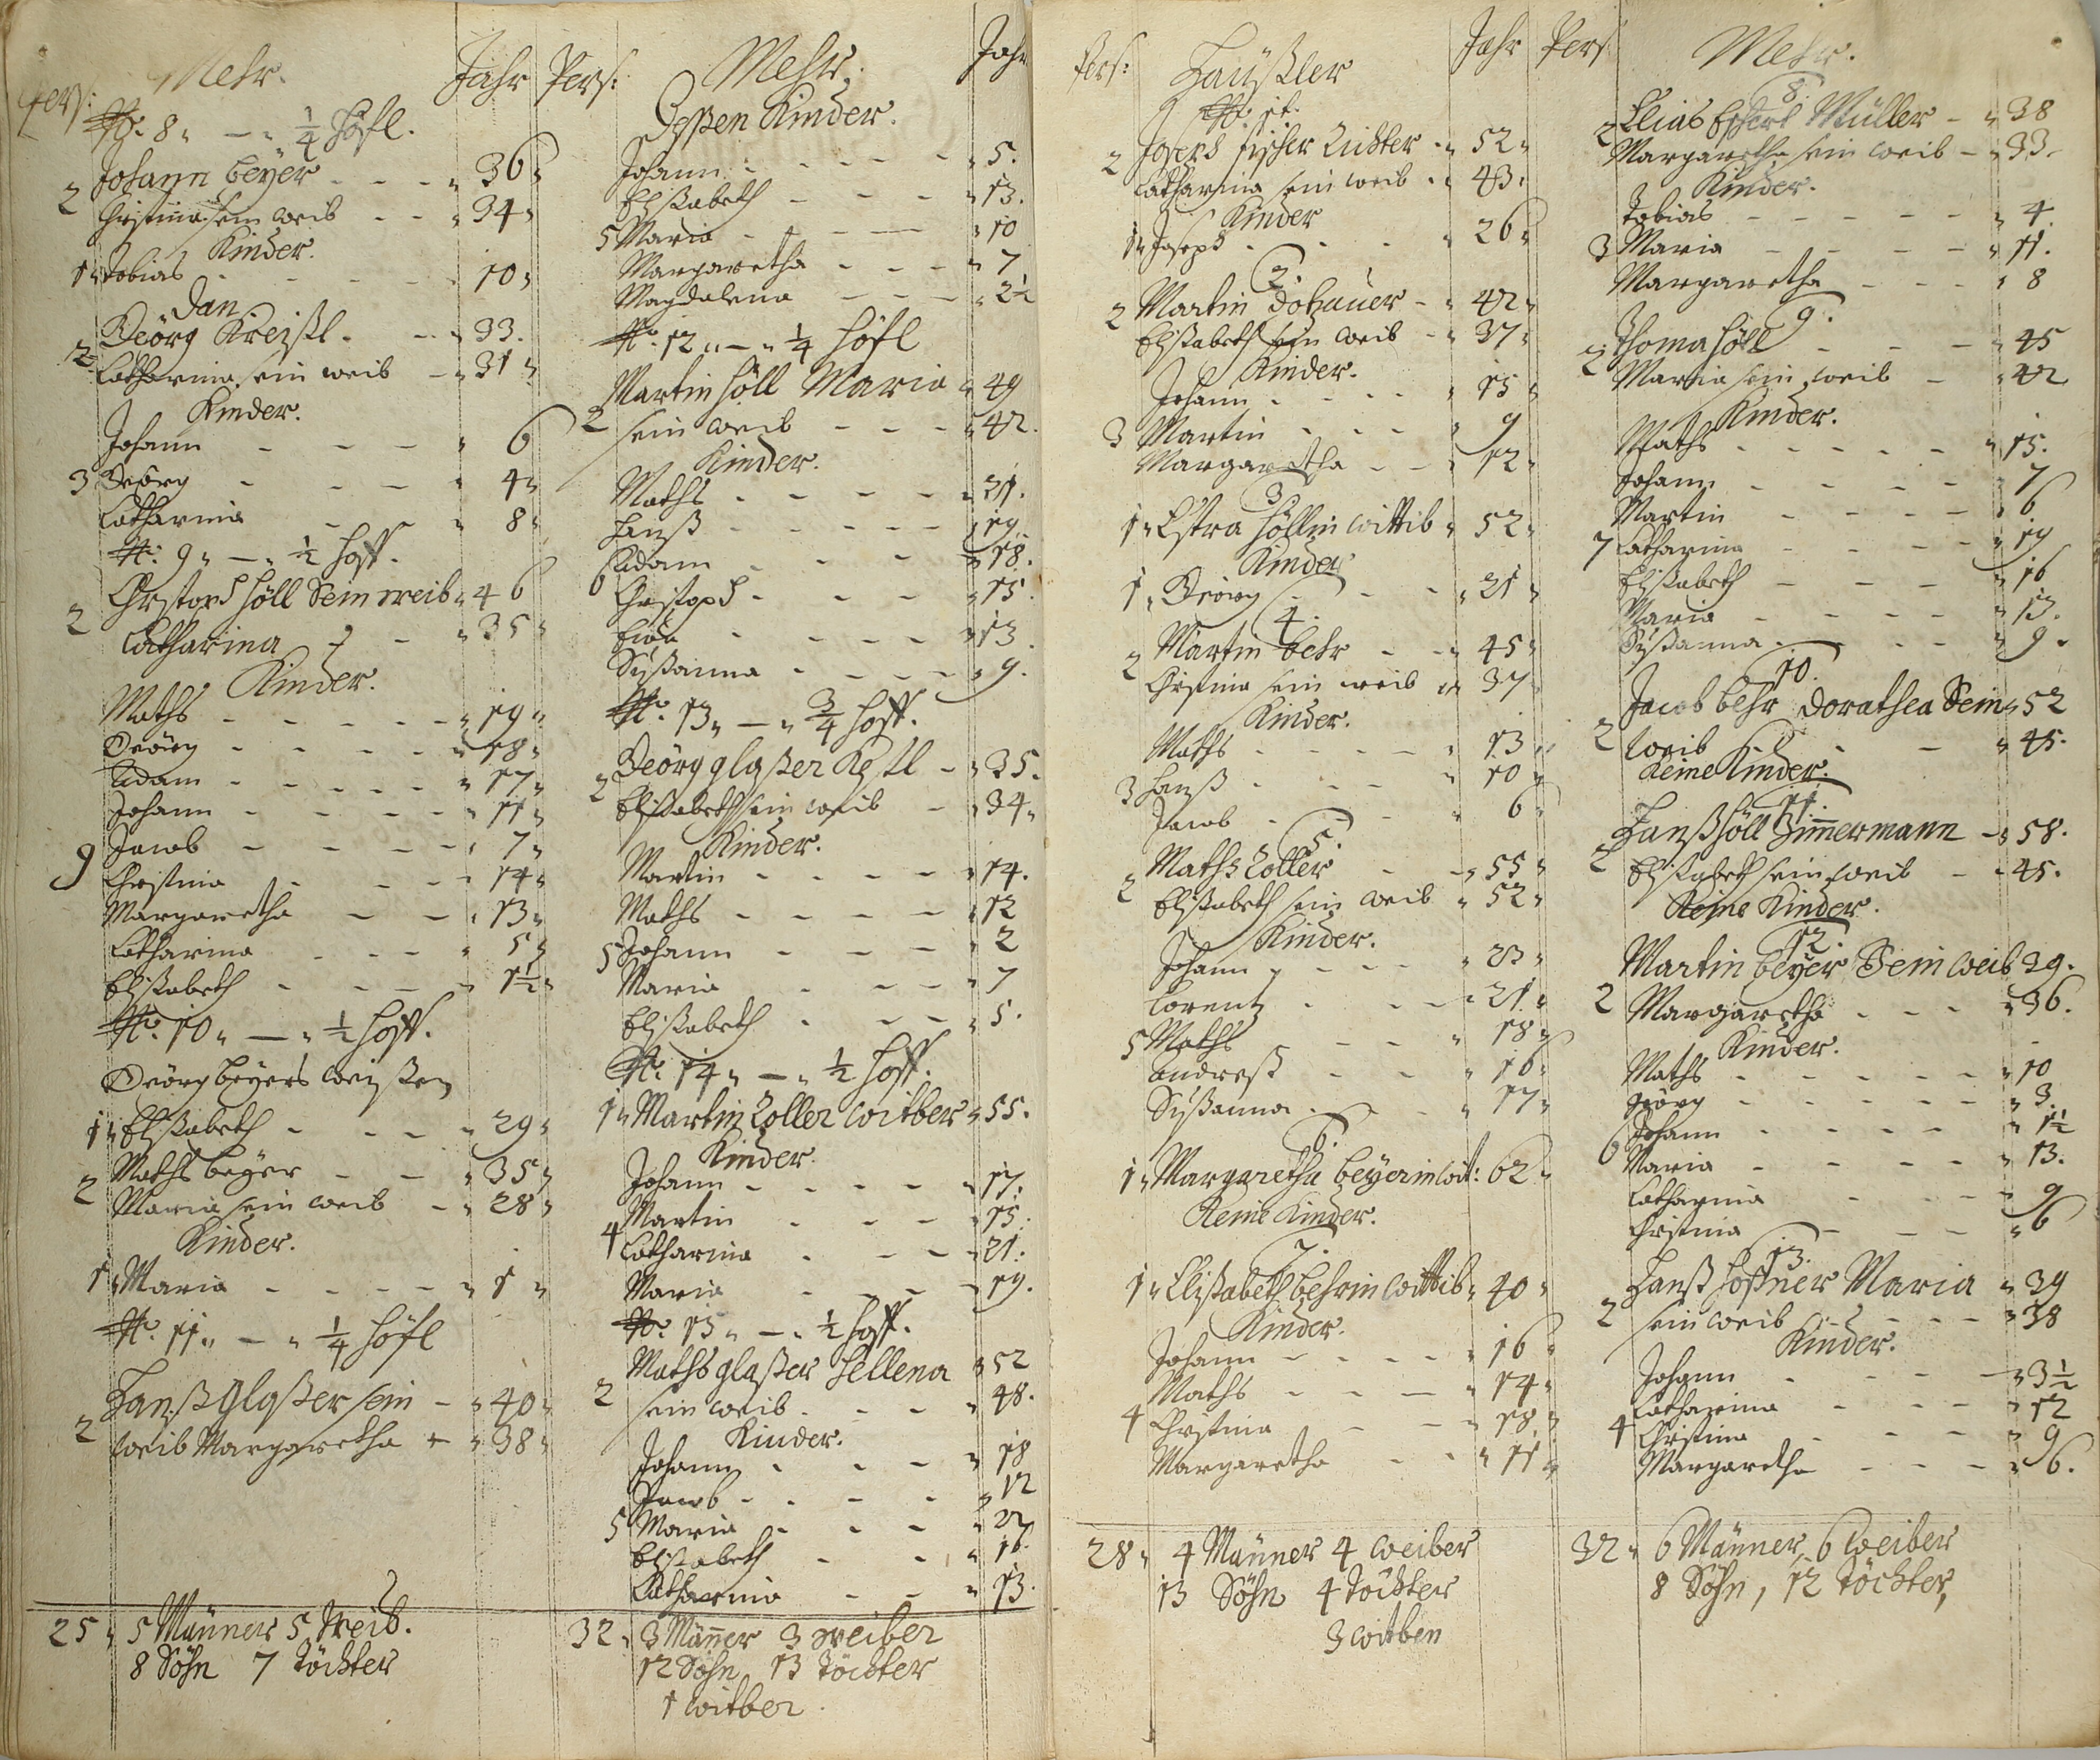 Pers: Mehr. Jahr
No. 8 " — " 1/4 höfl.
2 Johann beyer - - - " 36 "
Christina sein weib - - " 34 "
Kinder.
1 " Tobias - - - " 10 "
Dan
2 Geörg Kreißl - - - " 33.
Catharina sein weib - " 31 "
Kinder.
Johann - - - " 6
3 Geörg - - - " 4 "
Catharina - - " 8 "
No. 9 " — " 1/2 hoff.
2 Christoph höll Sein weib " 46
Catharina - - " 35 "
Kinder.
Maths - - - - - " 19 "
Geörg - - - - " 18 "
Adam - - - - - " 17 "
Johann - - - - " 11 "
9 Jacob - - - - " 7 "
Christina - - - " 14 "
Margaretha - - " 13 "
Catharina - - - " 5 "
Elißabeth - - - - " 1 1/2 "
No. 10 " — " 1/2 hoff.
Geörg beyers weißen
1 " Elißabeth - - - - " 29 "
2 Maths beyer - - - " 35 "
Maria sein weib - " 28 "
Kinder.
1 " Maria - - - - - " 1 "
No. 11 " — " 1/4 höfl
2 Hanß glaßer sein - " 40 "
weib Margaretha - " 38 "
25 " 5 Männer 5 Weib.
8 Söhn 7 Töchter
Pers: Mehr. Jahr
Deßen Kinder.
Johann - - - - - " 5.
Elißabeth - - - " 13.
5 Maria - - - - " 10
Margaretha - - - " 7
Magdalena - - - " 2 1/2
No. 12 " — " 1/4 höfl
Martin höll Maria " 49
2 sein weib - - - " 42.
Kinder.
Maths - - - - - " 21.
Hanß - - - - - " 19.
Adam - - - " 18.
6 Christoph - - - " 15.
Eva - - - - " 13
Sußanna - - - - " 9.
No. 13 " — " 3/4 hoff.
2 Geörg glaßer - " 35.
Elißabeth sein weib - " 34 "
Kinder.
Martin - - - - " 14.
Maths - - - - - " 12
5 Johann - - - " 2
Maria - - - " 7
Elißabeth - - - " 5.
No. 14 " — " 1/2 hoff.
1 " Martin Zoller witber " 55.
Kinder
Johann - - - - - " 17.
4 Martin - - - " 15.
Catharina - - - " 21.
Maria - - - - " 19.
No. 15 " — " 1/2 hoff.
Maths glaßer Hellena " 52
2 sein weib - - - " 48.
Kinder.
Johann - - - " 18
Jacob - - - - " 12
5 Maria - - - " 22
Elißabeth - - " 16.
Catharina - - " 13.
32 " 3 Männer 3 weiber
12 Söhn 13 Töchter
1 witber
Pers: Häußler Jahr
No. 1t.
2 Joseph fischer Richter " 52 "
Catharina sein weib " 43 "
Kinder
1 " Joseph - - - " 26 "
2.
2 Martin Dotzauer - " 42 "
Elißabeth sein weib - " 37 "
Kinder.
Johann - - - - " 15 "
3 Martin - - - " 9
Margaretha - - " 12 "
3
1 " Estra höllin wittib " 52 "
Kinder
1 " Geörg - - - " 21 "
4.
2 Martin behr - - " 45 "
Christina sein weib " 37 "
Kinder.
Maths - - - - " 13 "
3 Hanß - - - " 10 "
Jacob - - - " 6 "
5.
2 Maths Zoller - - " 55 "
Elißabeth sein weib " 52 "
Kinder.
Johann - - - - " 23 "
Lorentz - - - - " 21 "
5 Maths - - - " 18 "
Andreß - - - " 16 "
Sußanna - - - " 17 "
6.
1 " Margaretha beyerin wit: 62 "
Keine Kinder.
7.
1 " Elißabeth behrin wittib " 40 "
Kinder.
Johann - - - - " 16 "
Maths - - - - " 14 "
4 Christina - - - " 18 "
Margaretha - - " 11 "
28 " 4 Männer 4 weiber
13 Söhn 4 Töchter
3 witben
Pers Mehr.
8.
2 Elias Müller - " 38
Margaretha sein weib - " 33 -
Kinder.
Tobias - - - - - " 4.
3 Maria - - - - - " 11.
Margaretha - - - - " 8
9.
2 Thoma höll - - - " 45
Maria sein weib - " 42
Kinder.
Maths - - - - - " 15.
Johann - - - - " 7
Martin - - - - " 6
7 Catharina - - - - " 19
Elißabeth - - - " 16
Maria - - - - - " 13.
Sußanna - - - " 9 "
10.
Jacob behr Dorathea Sein " 52
2 weib - - - " 45.
Keine Kinder.
11.
2 Hanß höll Zimmermann - " 58.
Elißabeth sein weib - " 45.
Keine Kinder.
12.
Martin beyer Sein weib 39.
2 Margaretha - - - " 36.
Kinder.
Maths - - - - - " 10
Geörg - - - - - " 3.
Johann - - - - " 1 1/2
6 Maria - - - - " 13.
Catharina - - - " 9
Christina - - - " 6
13.
Hanß hoffner Maria " 39
2 sein weib - - - " 38
Kinder.
Johann - - - - " 3 1/2
Catharina - - - " 12
4 Christina - - - " 9
Margaretha - - - " 6.
32 " 6 Männer, 6 weiber
8 Söhn, 12 Töchter,